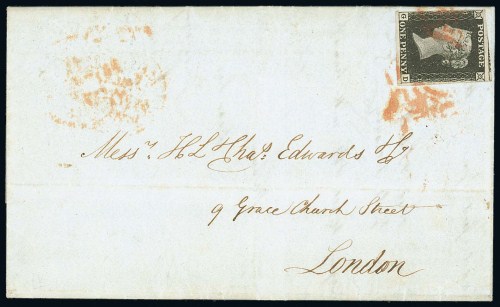 POSTAGE
G ONE PENNY D
Messrs. Edwards
9 Grace Church Street
London